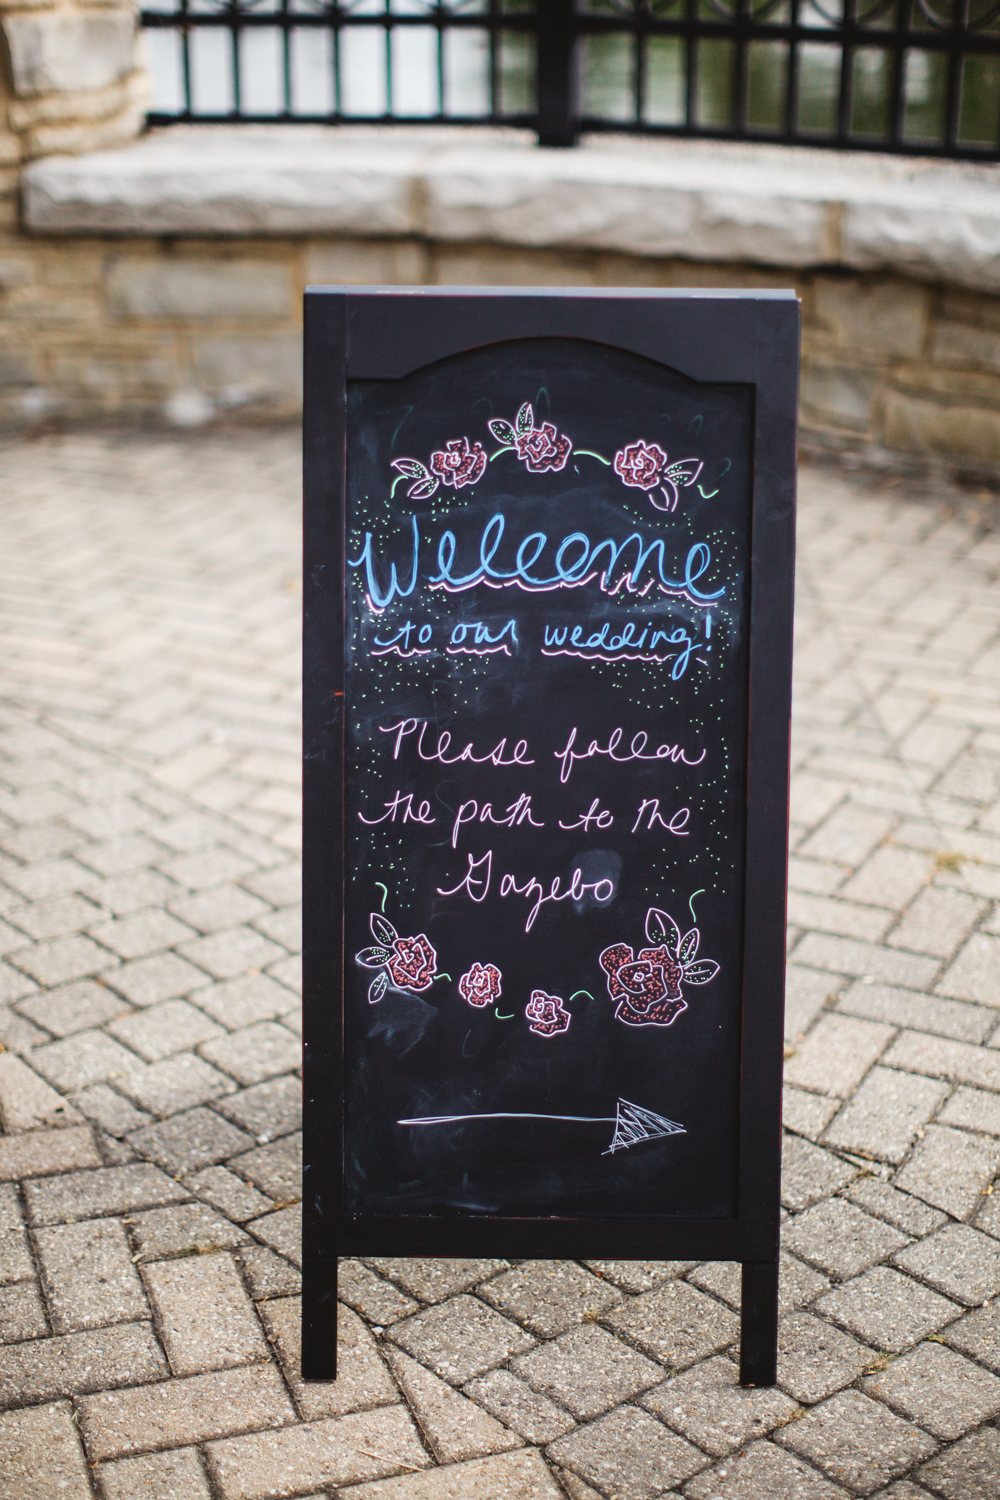 Welcome
to our wedding!
Please follow
the path to the
Gazebo